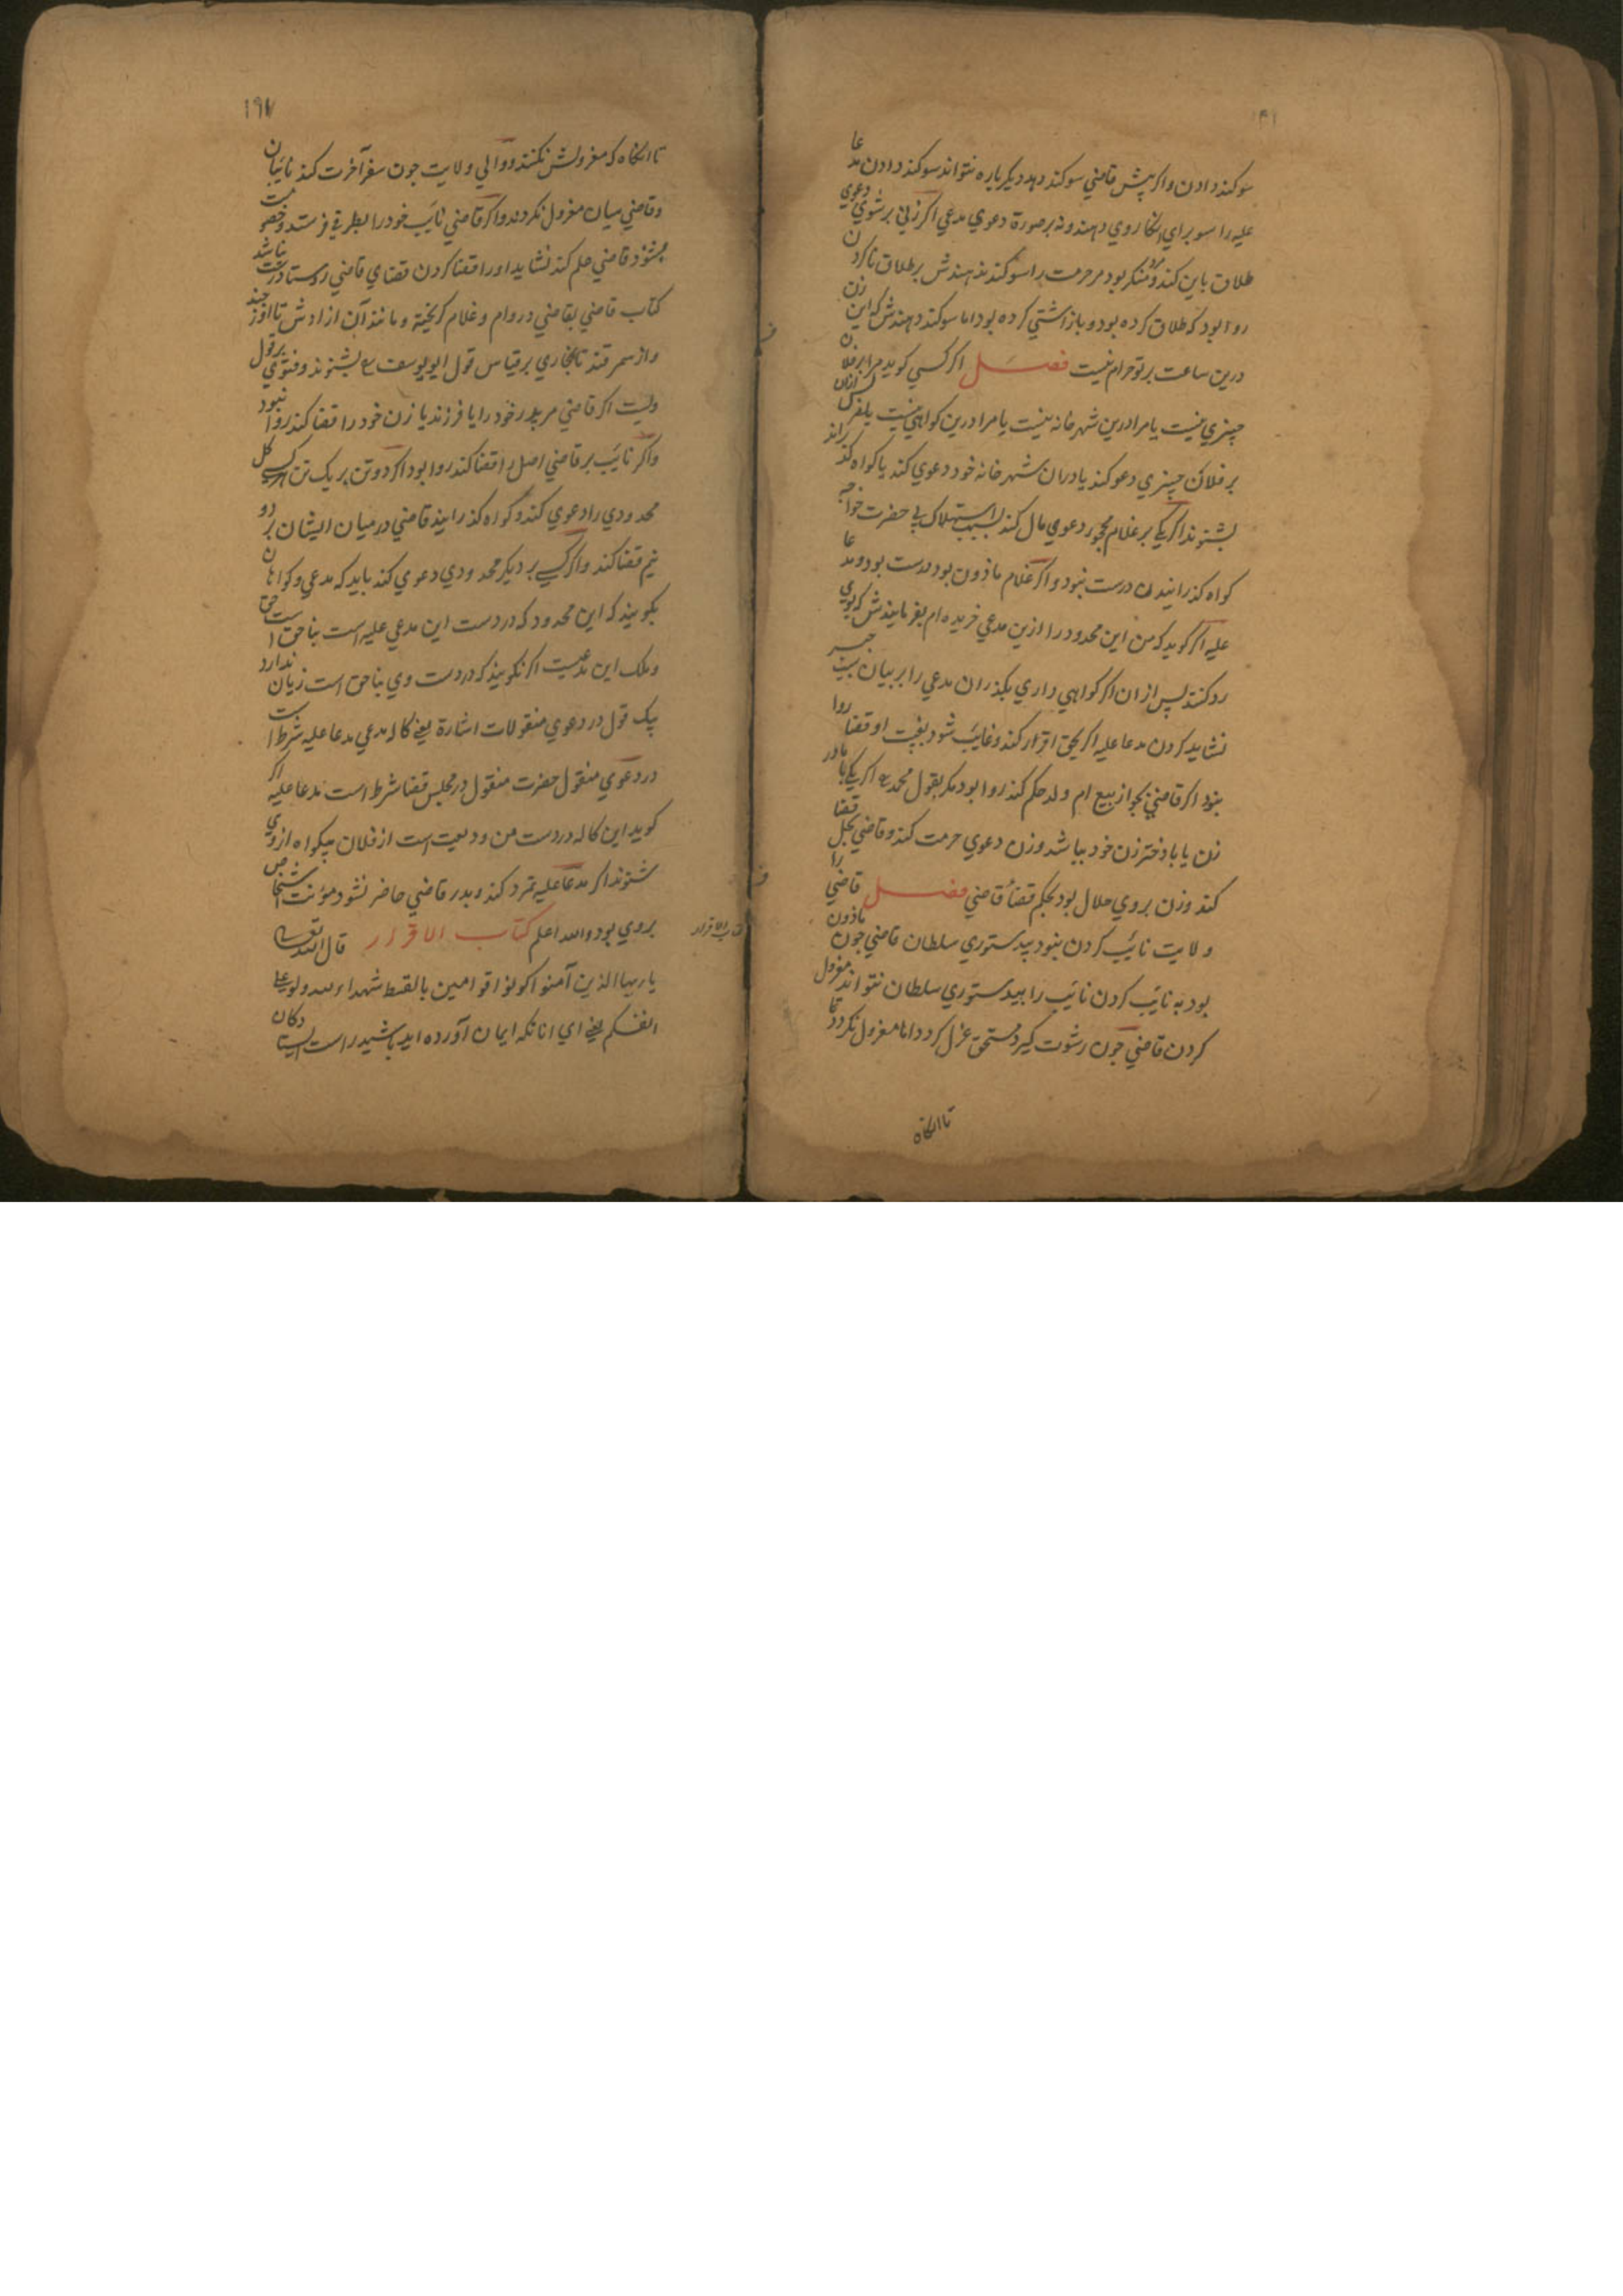 سوکند دادن واکر پیش قاضي سوکند دهد دیکر باره نتواند سوکند دادن مدعا
علیه را سو براي انکار وي دهند ونه برصورة دعوي مدعي اکر زني برشوي دعوي
طلاق باین کند ومنکر بود مرحرمت را سوکند ندهندش برطلاق ناکردن
روا بود که طلاق کرده بود و باز اشتي کرده بود اما سوکند دهندش که این زن
درین ساعت برتو حرام نیست فصل اکر کسي کوید مرا برفلان
چیزي نیست یا مرا درین شهر خانه نیست یا مرا درین کواهي نیست پس ازان
برفلان چیزي دعو کند یا دران شهر خانه خود دعوي کند یا کواه کذراند
بشنوند اکر یکي برغلام محجور دعوي مال کند بسبب استهلاک بي حضرت خواجه
کواه کذرانیدن درست نبود واکر غلام ماذون بود درست بود ومدعا
علیه اکر کوید که من این محدود را ازین مدعي خریده ام بفرمایندش که بوي
رد کند پس ازان اکر کواهي داري بکذران مدعي را بر بیان سبب جبر
نشاید کردن مدعا علیه اکر بحق اقرار کند وغایب شود بغیبت او قضا روا
بنود اکر قاضي بجواز بیع ام ولد حکم کند روا بود مکر بقول محمد اکر یکي با مادر
زن یا با دختر زن خود بباشد وزن دعوي حرمت کند وقاضي بحل قضا
کند وزن بروي حلال بود بحکم قضاء قاضي فصل قاضي را
ولایت نایب کردن بنود بیدستوري سلطان قاضي چون ماذون
بود به نایب کردن نایب را بیدستوري سلطان نتواند معزول
کردن قاضي چون رشوت کیرد مستحق عزل کردد اما معزول نکردد
تا انکاه
۱۹۷
تا انکاه که معزولش نکنند ووالي ولایت چون سفر آخرت کند نایبان
وقاضي میان معزول نکردند واکر قاضي نایب خود را بطرفي فرستد وخصومت
بشنود قاضي حکم کند نشاید اورا قضا کردن قضاي قاضي روستا درست نباشد
کتاب قاضي بقاضي در وام وغلام کریخته ومانند آن از ادش تا اوزجند
واز سمرقند تا بخاري برقیاس قول ابویوسف بشنوند وفتوي برقول
ولیت اکر قاضي مر پدر خود را یا فرزند یا زن خود را قضا کند روا نبود
واکر نایب بر قاضي اصل را قضا کند روا بود اکر دو تن بر یک تن هر یکي کل
محدودي را دعوي کند وکواه کذرانید قاضي درمیان ایشان بر دو
نیم قضا کند واکر کسي بر دیکر محدودي دعوي کند باید که مدعي وکواهان
بکویند که این محدود که در دست این مدعي علیه است بناحق است
وملک این مدعیست اکر نکویند که در دست وي بناحق است زیان ندارد
بیک قول در دعوي منقولات اشارة یعني کاله مدعي مدعا علیه شرط است
در دعوي منقول حضرت منقول در مجلس قضا شرط است مدعا علیه اکر
کوید این کاله در دست من ودیعت است از فلان بیکواه ازوي
شنوند اکر مدعا علیه تمرد کند وبدر قاضي حاضر نشود مؤنت اشخاص
بروي بود والله اعلم کتاب الاقرار قال الله تعالي
کتاب الاقرار
یا ایها الذین آمنوا کونوا قوامین بالقسط شهداء لله ولو علي
انفسکم یعني اي انانکه ایمان آورده اید باشید راست ایستادکان